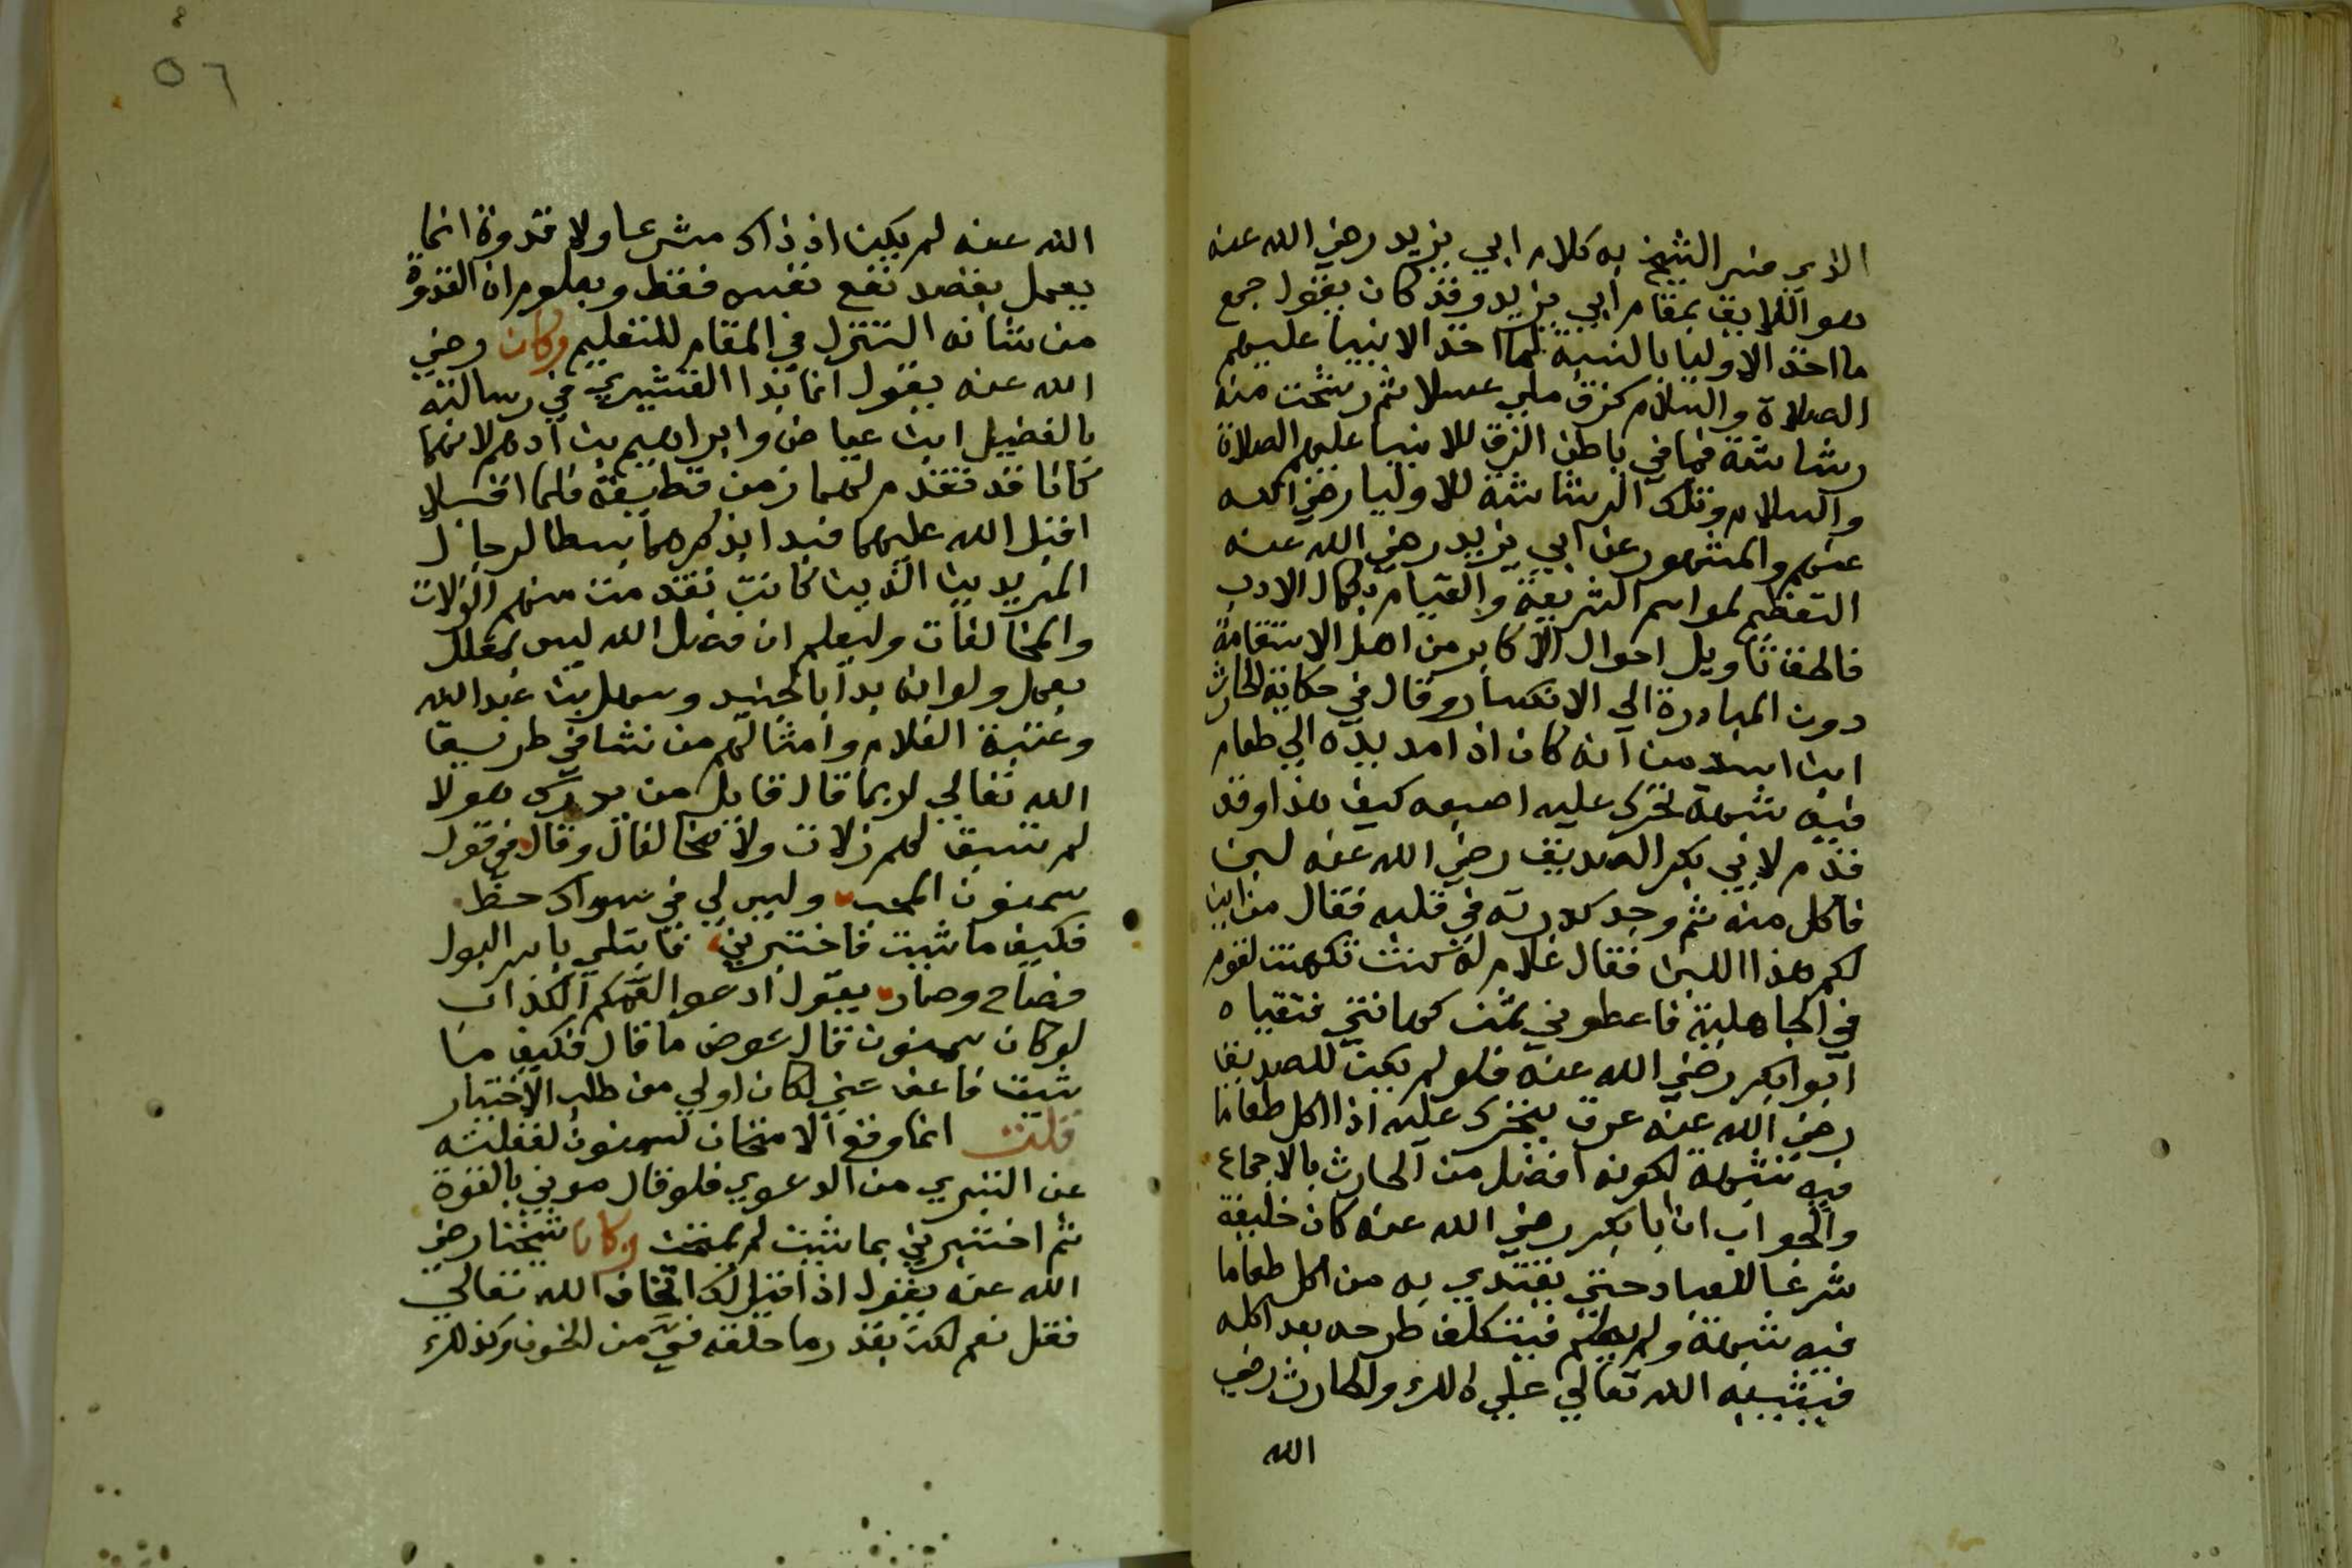 الذي فسر الشيخ به كلام ابي يزيد رضي الله عنه
هو اللايق بمقام ابي يزيد وقد كان يقول جميع
ما اخذ الاوليا بالنسبة لما اخذ الانبيا عليهم
الصلاة والسلام كزق ملي عسلا ثم رشحت منه
رشاشة فما في باطن الزق للانبيا عليهم الصلاة
والسلام وتلك الرشاشة للاوليا رضي الله
عنهم والمشهور عن ابي يزيد رضي الله عنه
التعظيم لمراسم الشريعة والقيام بكمال الادب
تاويل احوال الاكابر من اهل الاستقامة
دون المبادرة الي الانكسار وقال في حكاية الحارث
ابن اسد من انه كان اذا مد يده الي طعام
فيه شبهة تحرك عليه اصبعه كيف هذا وقد
قدم لابي بكر الصديق رضي الله عنه لبن
فاكل منه ثم وجد كدرته في قلبه فقال من اين
لكم هذا اللبن فقال غلام له كنت تكهنت لقوم
في الجاهلية فاعطوني ثمن كهانتي فتقياه
ابوا بكر رضي الله عنه فلو لم يكن للصديق
رضي الله عنه عرق يتحرك عليه اذا اكل طعاما
فيه شبهة لكونه افضل من الحارث بالاجماع
والجواب ان ابا بكر رضي الله عنه كان خليفة
شرعيا للعباد حتي يقتدي به من اكل طعاما
فيه شبهة ولم يعلم فيتكلف طرحه بعد اكله
فيثيبه الله تعالي علي ذلك والحارث رضي
الله
٥٦
الله عنه لم يكن اذ ذاك مشرعا ولا قدوة انما
يعمل بقصد نفع نفسه فقط ومعلوم ان القدوة
من شانه التنزل في المقام للتعليم وكان رضي
الله عنه يقول انما بدا القشيري في رسالته
بالفضيل ابن عياض وابراهيم بن ادهم لانهما
كانا قد تقدم لهما زمن قطيعة فلما اقبلا
اقبل الله عليهما فبدا بذكرهما بسطا لرجا
المريدين الذين كانت تقدمت منهم الزلات
والمخالفات وليعلم ان فضل الله ليس بمعلل
بعمل ولو انه بدا بالجنيد وسهل بن عبد الله
وعتبة الغلام وامثالهم من نشا في طريق
الله تعالي لربما قال قايل من يدرك هولا
لم تسبق لهم زلات ولا مخالفات وقال في قول
سمنون المحب وليس لي في سواك حظ
فكيف ما شيت فاختبرني فابتلي باسر البول
فصاح وصار يقول ادعوا لعمكم الكذاب
لو كان سمنون قال عوض ما قال فكيف ما
شيت فاعف عني لكان اولي من طلب الاختبار
قلت انما وقع الامتحان لسمنون لغفلته
عن التبري من الدعوي فلو قال مدني بالقوة
ثم اختبرني بما شيت لم يمتحن وكان شيخنا رضي
الله عنه يقول اذا قيل لك اتخاف الله تعالي
فقل نعم لكن بقدر ما خلقه في من الخوف وكذلك